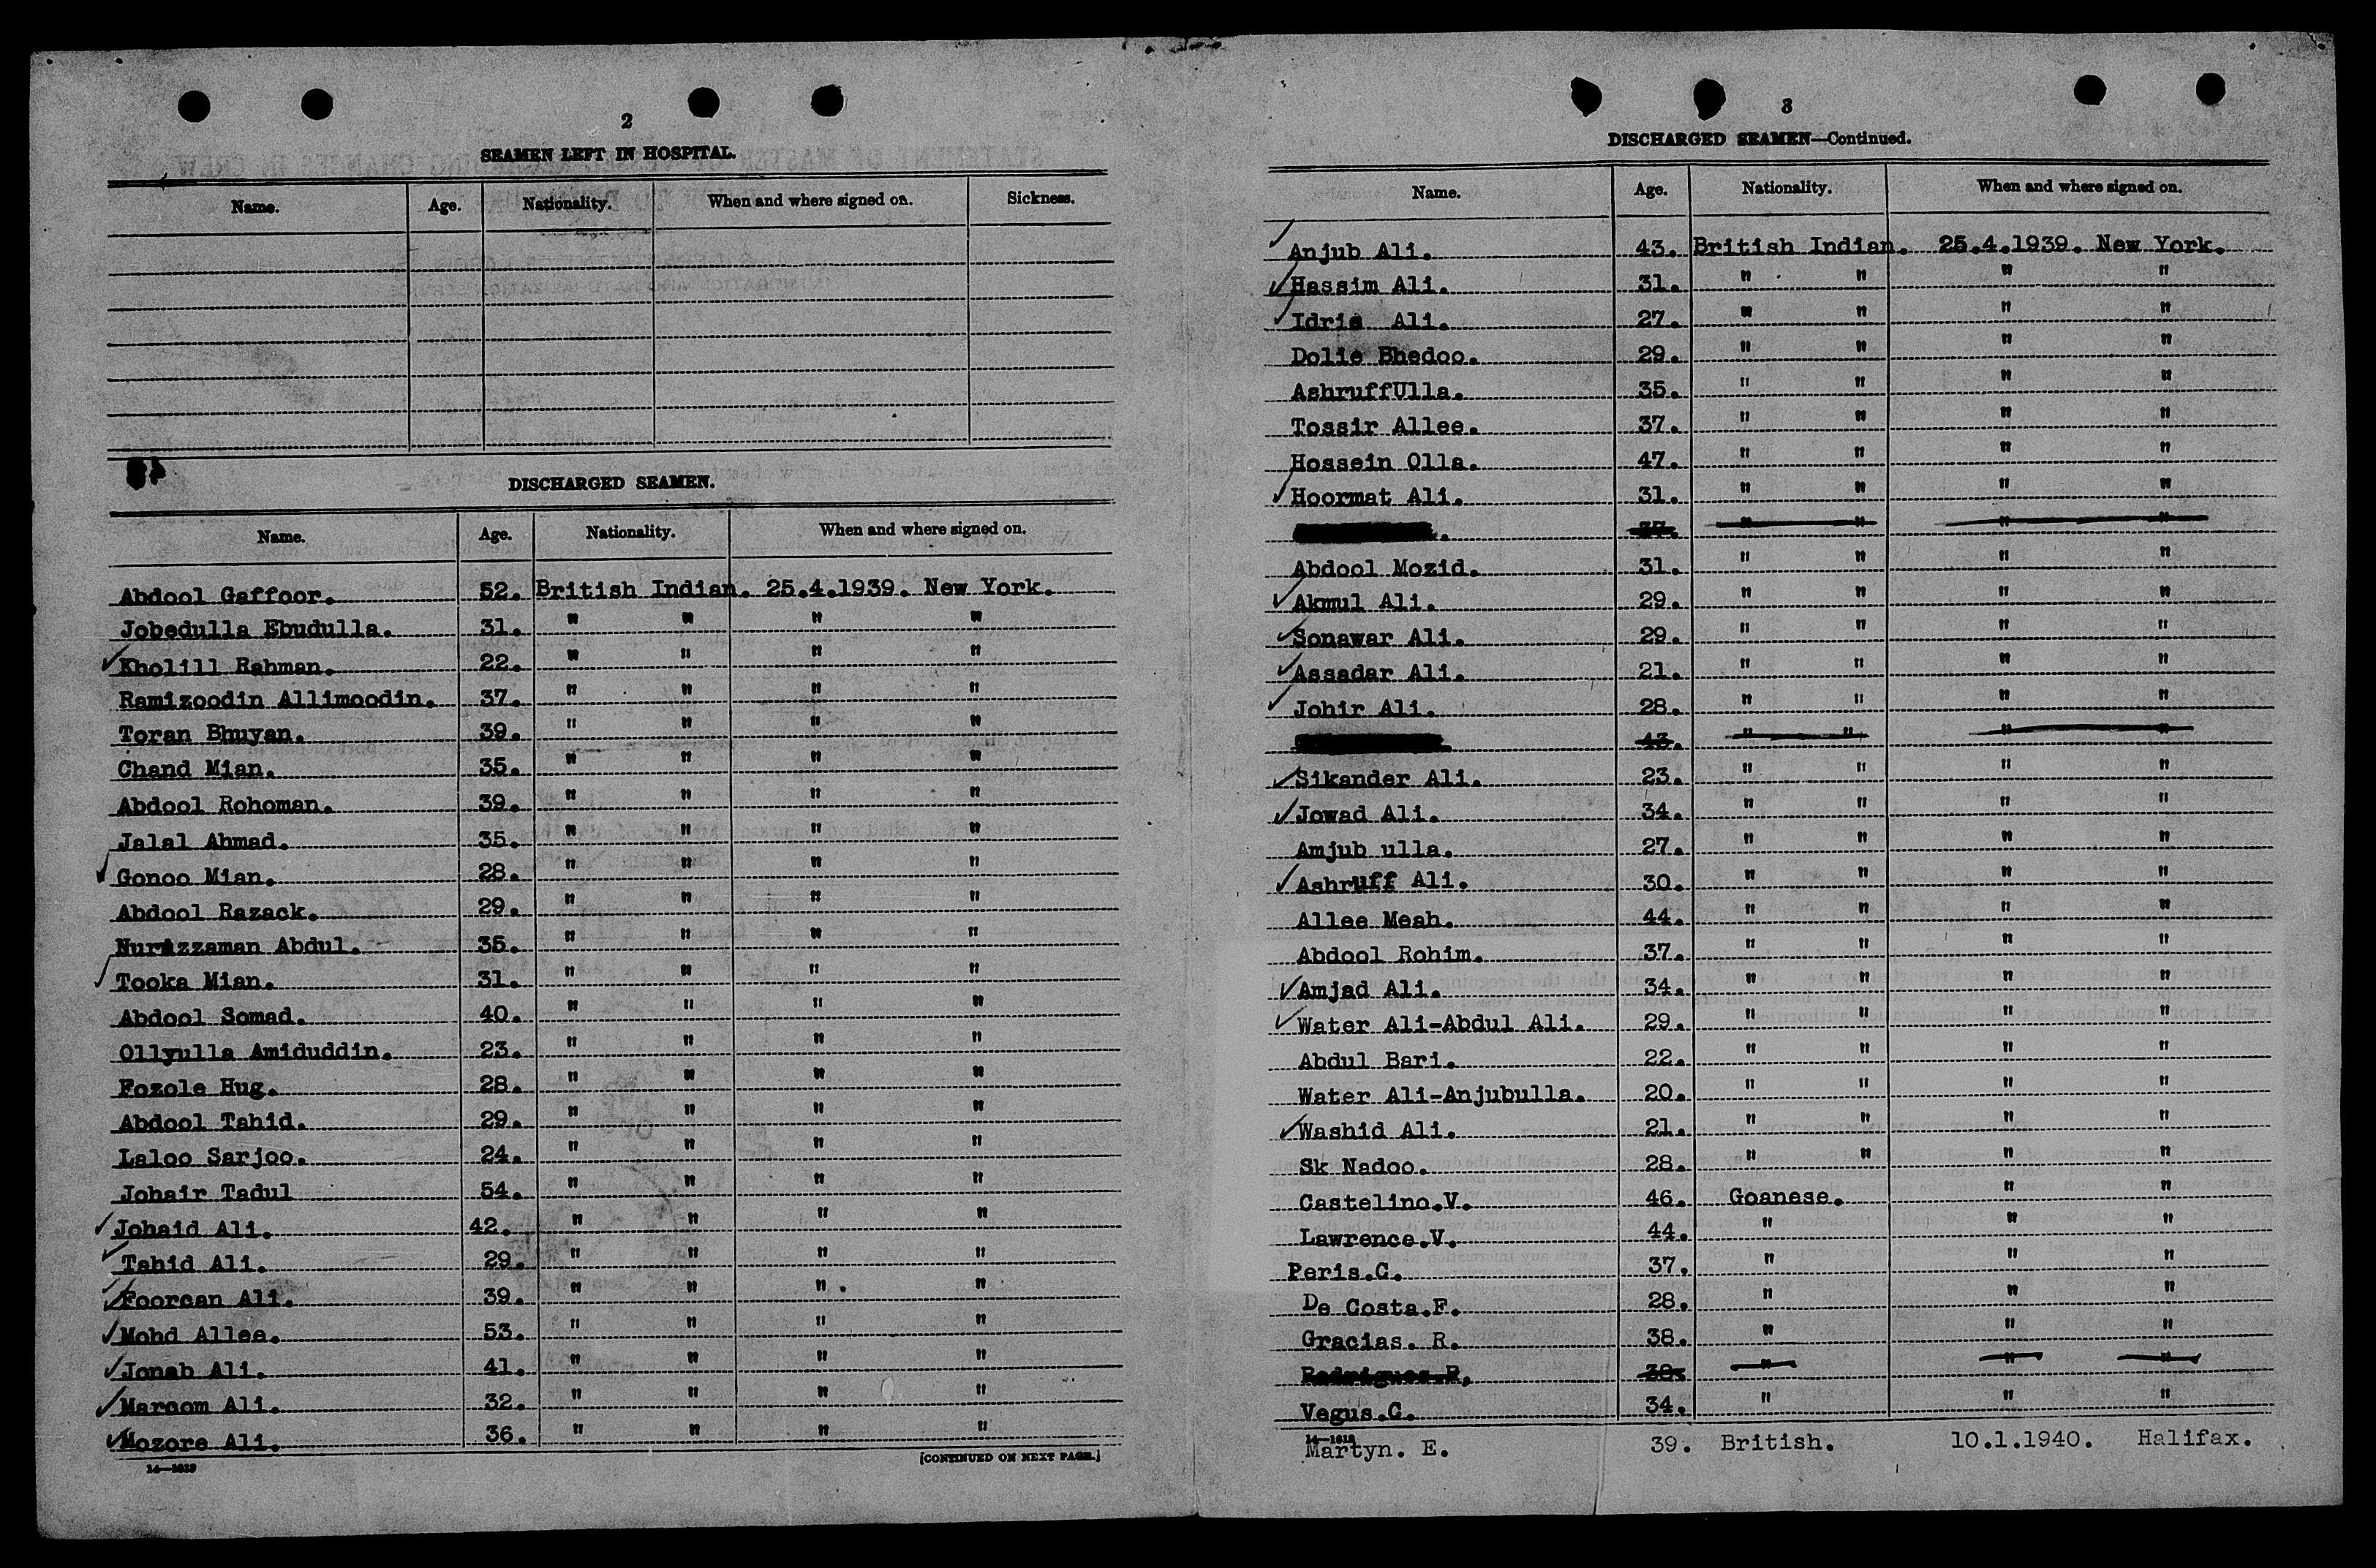 2
SEAMEN LEFT IN HOSPITAL.
Name. Age. Nationality. When and where signed on. Sickness.
DISCHARGED SEAMEN.
Name. Age. Nationality. When and where signed on.
Abdool Gaffoor. 52. British Indian. 25.4.1939. New York.
Jobedulla Ebudulla. 31. " " " "
Kholill Rahman. 22. " " " "
Ramizoodin Allimoodin. 37. " " " "
Toran Bhuyan. 39. " " " "
Chand Mian. 35. " " " "
Abdool Rohoman. 39. " " " "
Jalal Ahmad. 35. " " " "
Gonoo Mian. 28. " " " "
Abdool Razack. 29. " " " "
Nurazzaman Abdul. 35. " " " "
Tooka Mian. 31. " " " "
Abdool Somad. 40. " " " "
Ollyulla Amiduddin. 23. " " " "
Fozole Hug. 28. " " " "
Abdool Tahid. 29. " " " "
Laloo Sarjoo. 24. " " " "
Johair Tadul 54. " " " "
Johaid Ali. 42. " " " "
Tahid Ali. 29. " " " "
Foorcan Ali. 39. " " " "
Mohd Allee. 53. " " " "
Jonab Ali. 41. " " " "
Marcom Ali. 32. " " " "
Mozore Ali. 36. " " " "
14—1613 [CONTINUED ON NEXT PAGE.]
3
DISCHARGED SEAMEN—Continued.
Name. Age. Nationality. When and where signed on.
Anjub Ali. 43. British Indian. 25.4.1939. New York.
Hassim Ali. 31. " " " "
Idris Ali. 27. " " " "
Dolie Bhedoo. 29. " " " "
AshruffUlla. 35. " " " "
Tossir Allee. 37. " " " "
Hossein Olla. 47. " " " "
Hoormat Ali. 31. " " " "
" " " "
Abdool Mozid. 31. " " " "
Akmul Ali. 29. " " " "
Sonawar Ali. 29. " " " "
Assadar Ali. 21. " " " "
Johir Ali. 28. " " " "
43. " " " "
Sikander Ali. 23. " " " "
Jowad Ali. 34. " " " "
Amjub ulla. 27. " " " "
Ashruff Ali. 30. " " " "
Allee Meah. 44. " " " "
Abdool Rohim. 37. " " " "
Amjad Ali. 34. " " " "
Water Ali-Abdul Ali. 29. " " " "
Abdul Bari. 22. " " " "
Water Ali-Anjubulla. 20. " " " "
Washid Ali. 21. " " " "
Sk Nadoo. 28. " " " "
Castelino.V. 46. Goanese. " "
Lawrence.V. 44. " " "
Peris.C. 37. " " "
De Costa.F. 28. " " "
Gracias. R. 38. " " "
Rodrigues.P. " " "
Vegus.C. 34. " " "
14—1613
Martyn. E. 39. British. 10.1.1940. Halifax.